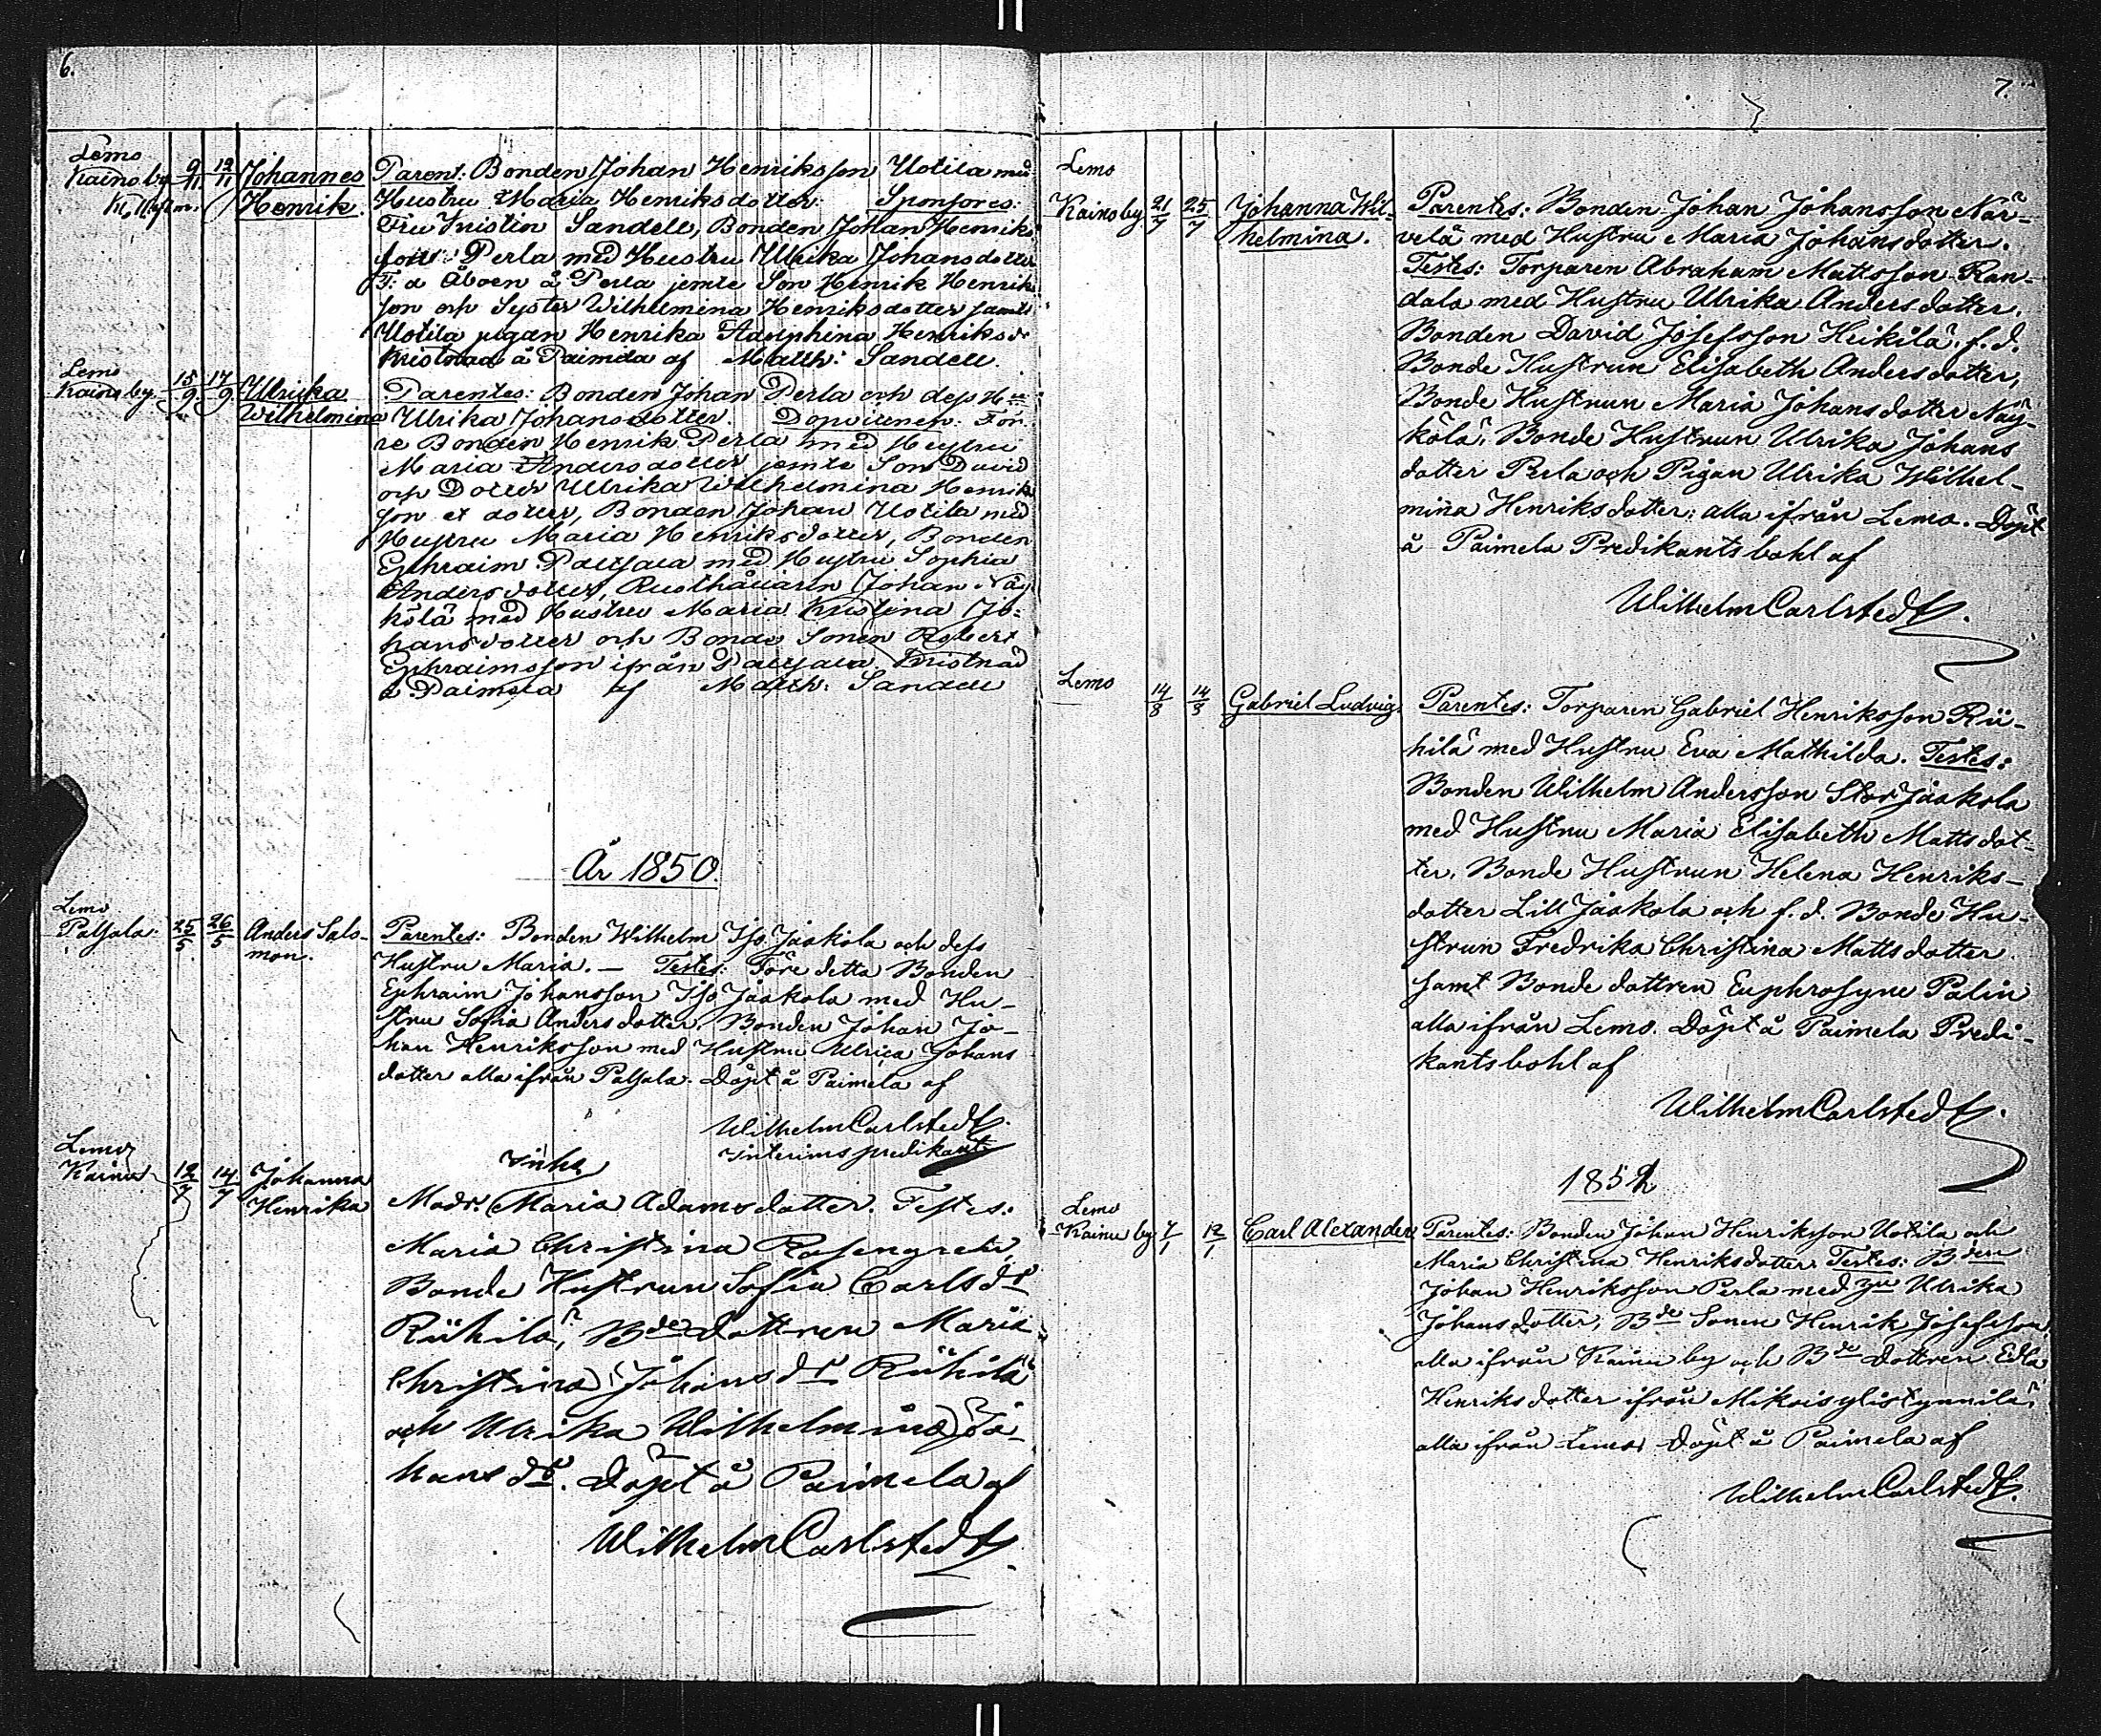 6.
Lemo
Kainoby 9/11 12/11 Johannes
Henrik.
Parent: Bonden Johan Henriksson Uotila med
Hustru Maria Henriksdotter. Sponsores:
Fru Kristin Sandell, Bonden Johan Henriks
son Perla med Hustru Ulrika Johansdotter
F: d Åboen å Perla jemte Son Henrik Henrik
son och Syster Wilhelmina Henriksdotter samt
Uotila pigan Henrika Adolphina Henriksdr
Kristnad å Paimela af Matth: Sandell.
Lemo
Kainoby 15/9 17/9 Ulricka
Wilhelmina
Parentes: Bonden Johan Perla och dess Hu
Ulrika Johansdotter. Dopvittnen: För
re Bonden Henrik Perla med Hustru
Maria Andersdotter jemte Son David
och Dotter Ulrika Wilhelmina Henrik
son et dotter, Bonden Johan Uotila med
Hustru Maria Henriksdotter, Bonden
Ephraim Paltsala med Hustru Sophia
Andersdotter, Rusthållaren Johan Näy
kölä med Hustru Maria Kristina Jo-
hansdotter och Bonde Sonen Robert
Ephraimsson ifrån Paltsala. Kristnad
å Paimela af Matth: Sandell
År 1850.
Lemo
Paltsala: 25/5 26/5 Anders Salo-
mon.
Parentes: Bonden Wilhelm Iso Jaakola och dess
Hustru Maria. — Testes: Före detta Bonden
Ephraim Johansson Iso Jaakola med Hu-
stru Sofia Andersdotter, Bonden Johan Jo-
han Henriksson med Hustru Ulrica Johans
dotter alla ifrån Paltsala. Döpt å Paimela af
Wilhelm Carlstedt.
interims predikant
Lemo
Kainu 12/7 14/7 Johanna
Henrika
Modr. Maria Adamsdotter. Testes:
Maria Christina Rosengren,
Bonde Hustrun Sofia Carlsdr
Riihilä, Bde dottren Maria
Christina Johansdr Riihilä
och Ulrika Wilhelmina Jo-
hansdr. Döpt å Paimela af
Wilhelm Carlstedt.
7.
Lemo
Kainoby 21/7 25/7 Johanna Wil-
helmina.
Parentes: Bonden Johan Johansson När-
velä med Hustru Maria Johansdotter.
Testes: Torparen Abraham Mattsson Ran-
dala med Hustru Ulrika Andersdotter,
Bonden David Josefsson Heikilä, f. d.
Bonde Hustrun Elisabeth Andersdotter,
Bonde Hustrun Maria Johansdotter Näy-
kölä, Bonde Hustrun Ulrika Johans
dotter Perla och Pigan Ulrika Wilhel-
mina Henriksdotter: alla ifrån Lemo. Döpt
å Paimela Predikantsbohl af
Wilhelm Carlstedt.
Lemo
14/8 14/8 Gabriel Ludvig.
Parentes: Torparen Gabriel Henriksson Rii-
hilä med Hustru Eva Mathilda. Testes:
Bonden Wilhelm Andersson Stor Jaakola
med Hustru Maria Elisabeth Mattsdot-
ter, Bonde Hustrun Helena Henriks-
dotter Lill Jaakola och f. d. Bonde Hu-
strun Fredrika Christina Mattsdotter
samt Bonde dottren Euphrosyne Palin
alla ifrån Lemo. Döpt å Paimela Predi-
kantsbohl af
Wilhelm Carlstedt.
1851
Lemo
Kainu by 7/1 12/1 Carl Alexander
Parentes: Bonden Johan Henriksson Uotila och
Maria Christina Henriksdotter. Testes: Bden
Johan Henriksson Perla med Hu Ulrika
Johansdotter, Bde Sonen Henrik Josefsson
alla ifrån Kainu by och Bde Dottren Edla
Henriksdotter ifrån
alla ifrån Lemo. Döpt å Paimela af
Wilhelm Carlstedt.